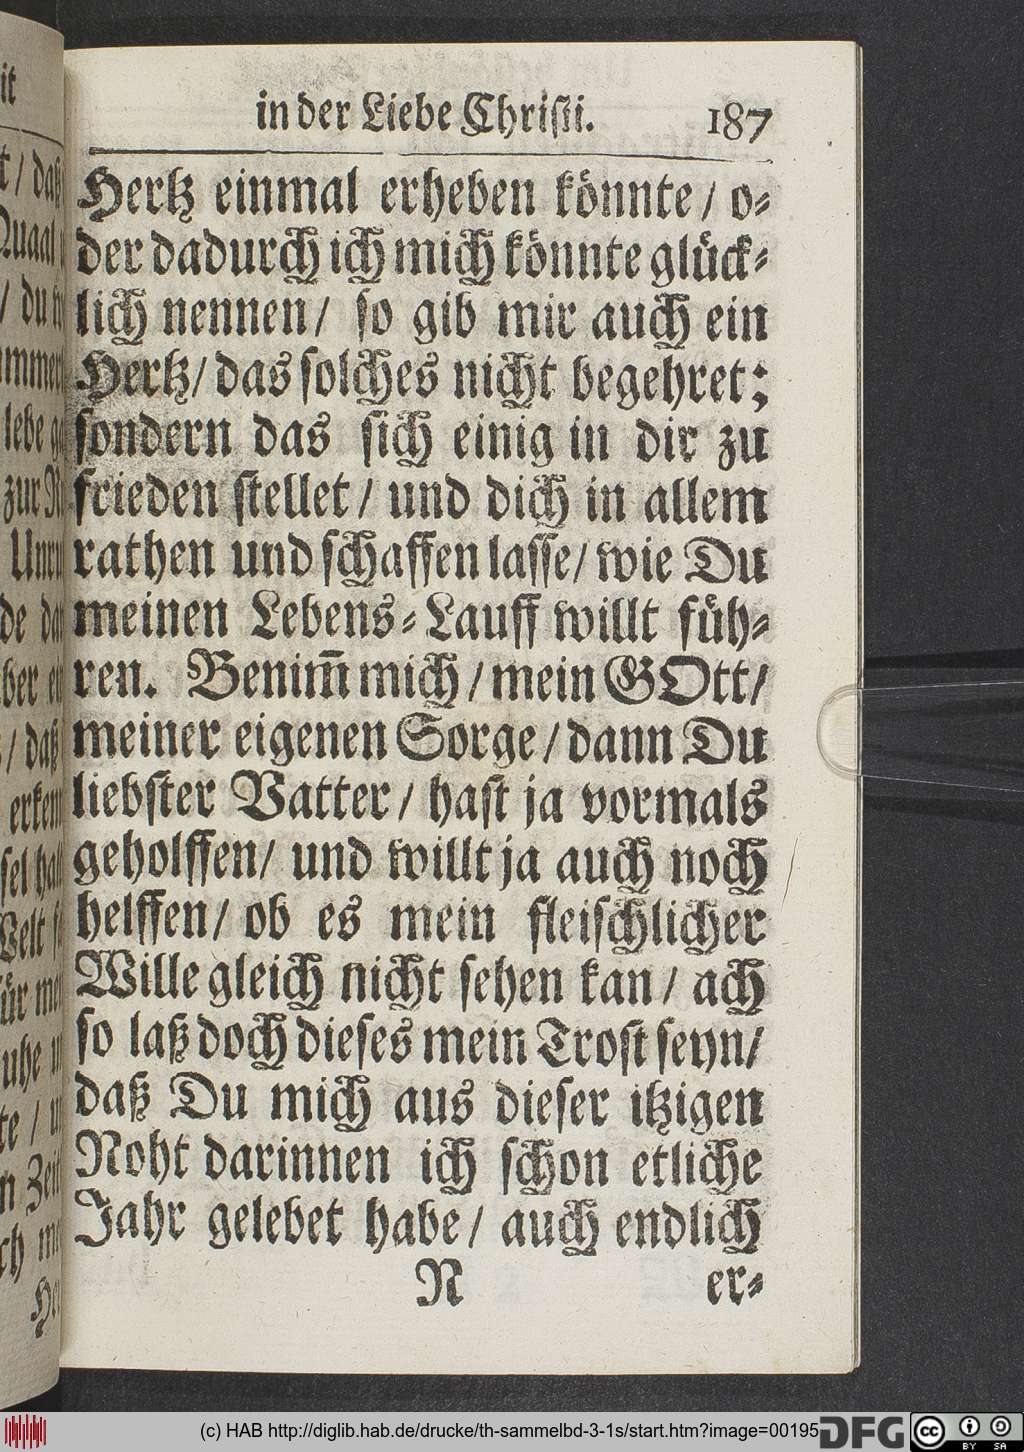 in der Liebe Christi. 187
Hertz einmal erheben könnte / o-
der dadurch ich mich könnte glück-
lich nennen / so gib mir auch ein
Hertz / das solches nicht begehret;
sondern das sich einig in dir zu
frieden stellet / und dich in allem
rathen und schaffen lasse / wie Du
meinen Lebens-Lauff willt füh-
ren. Benim̃ mich / mein GOtt /
meiner eigenen Sorge / dann Du
liebster Vatter / hast ja vormals
geholffen / und willt ja auch noch
helffen / ob es mein fleischlicher
Wille gleich nicht sehen kan / ach
so laß doch dieses mein Trost seyn /
daß Du mich aus dieser itzigen
Noht darinnen ich schon etliche
Jahr gelebet habe / auch endlich
N er-
(c) HAB http://diglib.hab.de/drucke/th-sammelbd-3-1s/start.htm?image=00195
DFG
cc BY SA